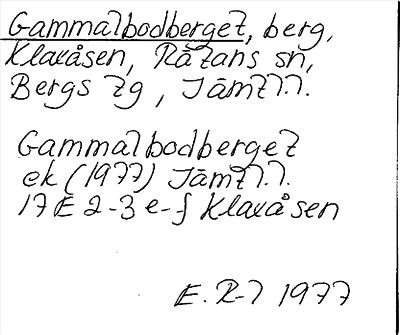 Gammalbodberget, berg,
Klaxåsen, Rätans sn,
Bergs tg, Jämtl.l.
Gammalbodberget
ek (1977) Jämtl.l.
17E 2-3 e-f Klaxåsen
E. R-l 1977